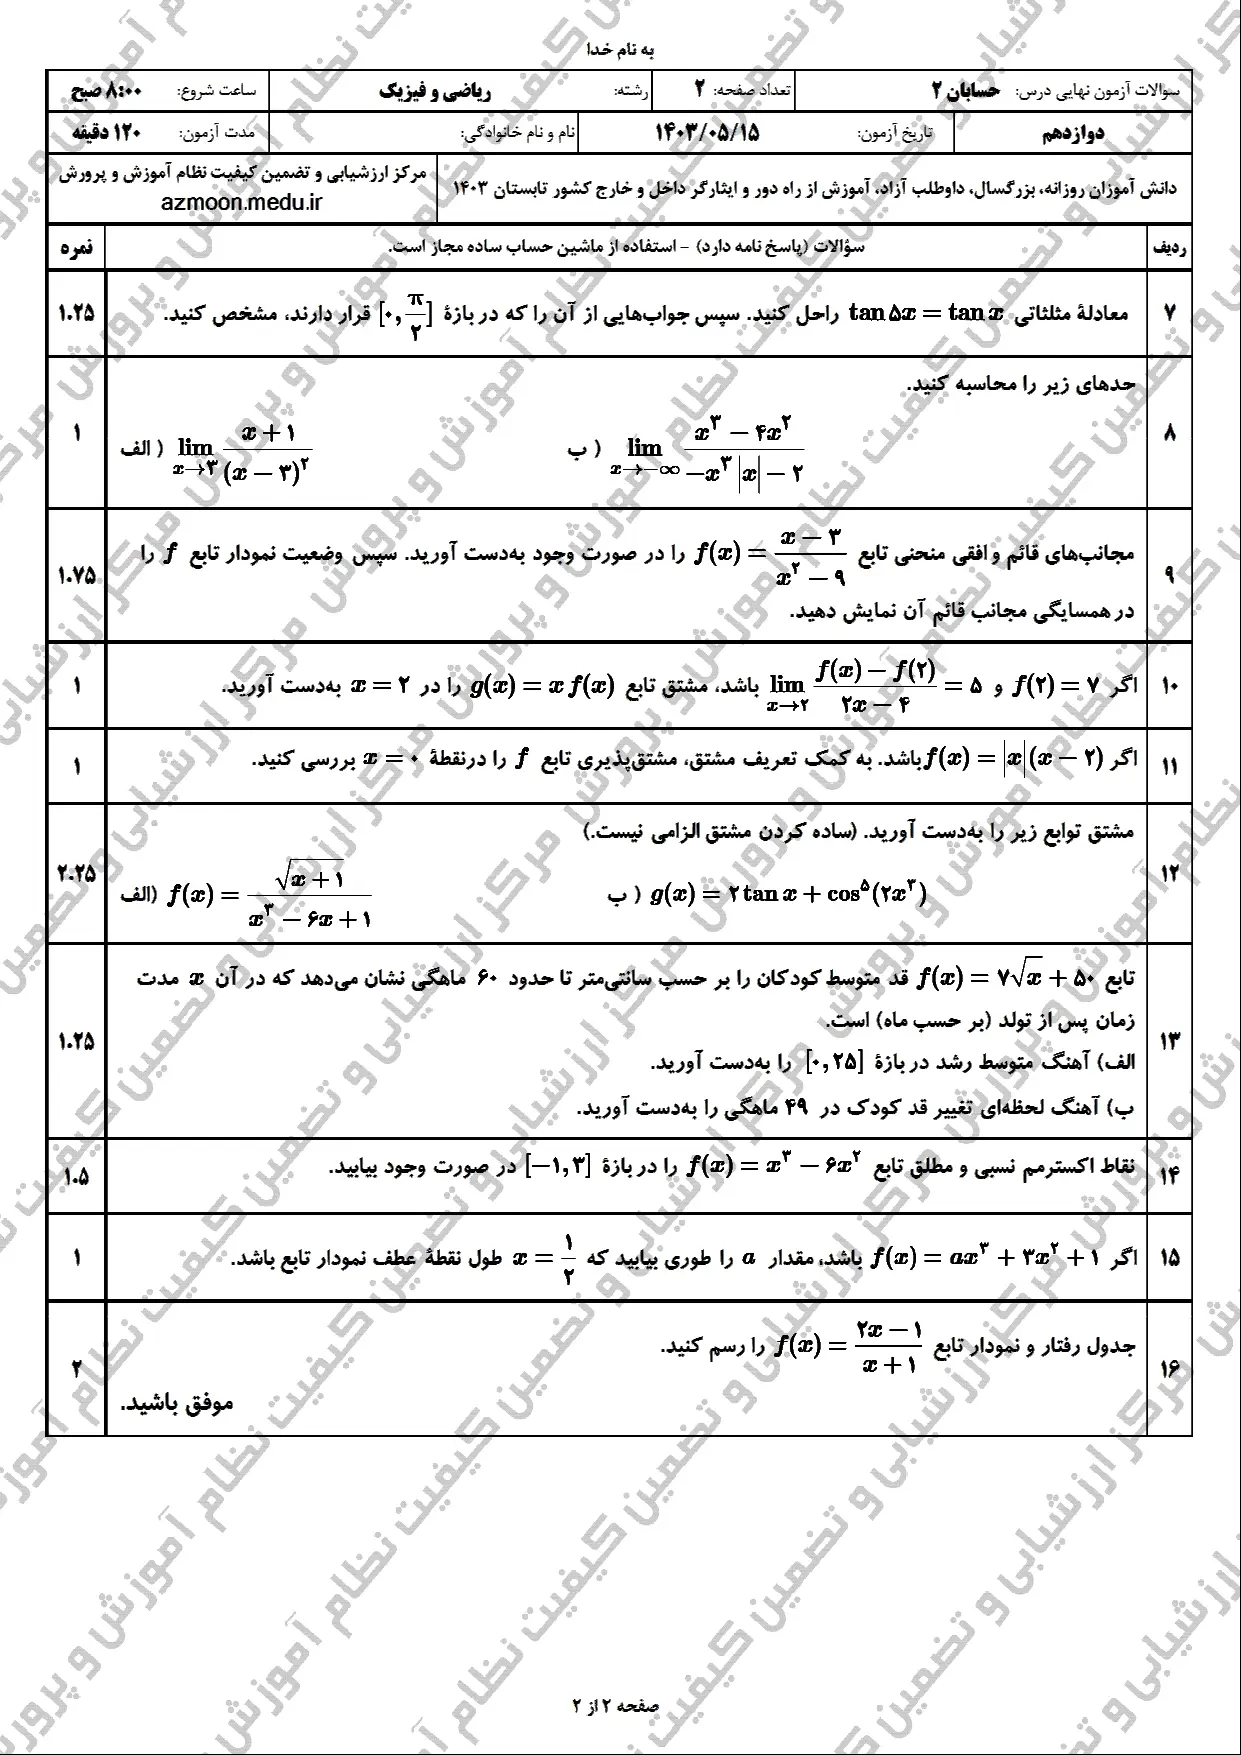 به نام خدا
سؤالات آزمون نهایی درس: حسابان ۲ تعداد صفحه: ۲ رشته: ریاضی و فیزیک ساعت شروع: ۸:۰۰ صبح
دوازدهم تاریخ آزمون: ۱۴۰۳/۰۵/۱۵ نام و نام خانوادگی: مدت آزمون: ۱۲۰ دقیقه
دانش آموزان روزانه، بزرگسال، داوطلب آزاد، آموزش از راه دور و ایثارگر داخل و خارج کشور تابستان ۱۴۰۳ مرکز ارزشیابی و تضمین کیفیت نظام آموزش و پرورش
azmoon.medu.ir
ردیف سؤالات (پاسخ نامه دارد) - استفاده از ماشین حساب ساده مجاز است. نمره
۷ معادلهٔ مثلثاتی tan ۵x = tan x راحل کنید. سپس جواب‌هایی از آن را که در بازهٔ [۰, π/۲] قرار دارند، مشخص کنید. ۱.۲۵
۸ حدهای زیر را محاسبه کنید. ۱
الف) lim x→۳ (x + ۱)/(x − ۳)^۲ ب) lim x→−∞ (x^۳ − ۴x^۲)/(−x^۳|x| − ۲)
۹ مجانب‌های قائم و افقی منحنی تابع f(x) = (x − ۳)/(x^۲ − ۹) را در صورت وجود به‌دست آورید. سپس وضعیت نمودار تابع f را ۱.۷۵
در همسایگی مجانب قائم آن نمایش دهید.
۱۰ اگر f(۲) = ۷ و lim x→۲ (f(x) − f(۲))/(۲x − ۴) = ۵ باشد، مشتق تابع g(x) = x f(x) را در x = ۲ به‌دست آورید. ۱
۱۱ اگر f(x) = |x|(x − ۲) باشد. به کمک تعریف مشتق، مشتق‌پذیری تابع f را درنقطهٔ x = ۰ بررسی کنید. ۱
۱۲ مشتق توابع زیر را به‌دست آورید. (ساده کردن مشتق الزامی نیست.) ۲.۲۵
الف) f(x) = √(x + ۱)/(x^۳ − ۶x + ۱) ب) g(x) = ۲ tan x + cos^۵(۲x^۳)
۱۳ تابع f(x) = ۷√x + ۵۰ قد متوسط کودکان را بر حسب سانتی‌متر تا حدود ۶۰ ماهگی نشان می‌دهد که در آن x مدت ۱.۲۵
زمان پس از تولد (بر حسب ماه) است.
الف) آهنگ متوسط رشد در بازهٔ [۰, ۲۵] را به‌دست آورید.
ب) آهنگ لحظه‌ای تغییر قد کودک در ۴۹ ماهگی را به‌دست آورید.
۱۴ نقاط اکسترمم نسبی و مطلق تابع f(x) = x^۳ − ۶x^۲ را در بازهٔ [−۱, ۳] در صورت وجود بیابید. ۱.۵
۱۵ اگر f(x) = ax^۳ + ۳x^۲ + ۱ باشد، مقدار a را طوری بیابید که x = ۱/۲ طول نقطهٔ عطف نمودار تابع باشد. ۱
۱۶ جدول رفتار و نمودار تابع f(x) = (۲x − ۱)/(x + ۱) را رسم کنید. ۲
موفق باشید.
صفحه ۲ از ۲
مرکز ارزشیابی و تضمین کیفیت نظام آموزش و پرورش